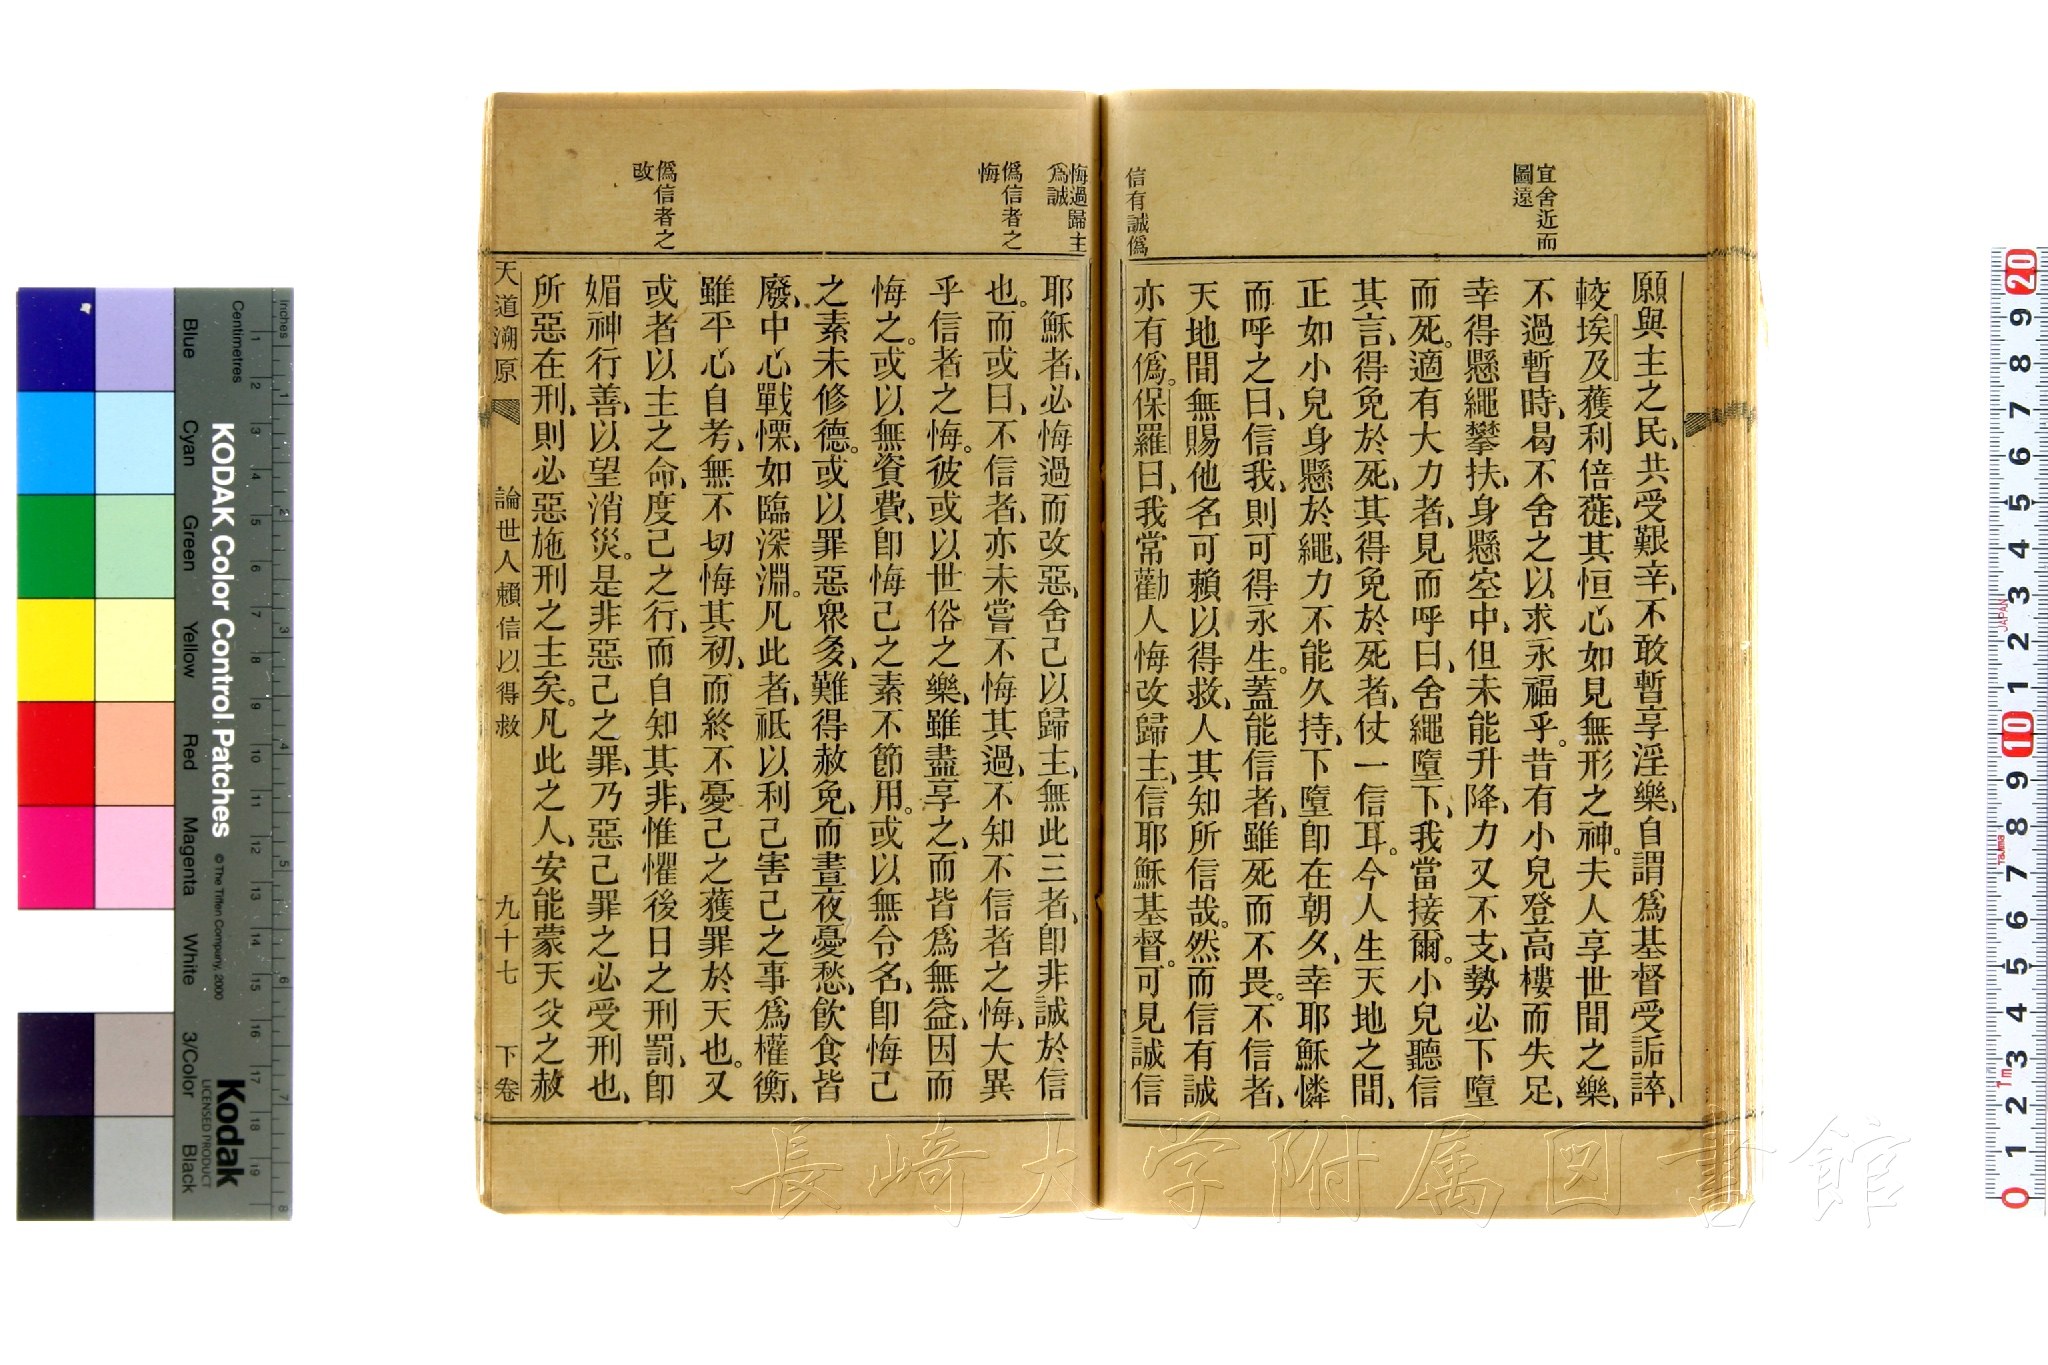 宜舍近而
圖遠
信有誠僞
願與主之民、共受艱辛、不敢暫享淫樂、自謂爲基督受詬誶、
較埃及獲利倍蓰、其恒心如見無形之神。夫人享世間之樂、
不過暫時、曷不舍之以求永福乎。昔有小兒登高樓而失足、
幸得懸繩攀扶、身懸空中、但未能升降、力又不支、勢必下墮
而死。適有大力者、見而呼曰、舍繩墮下、我當接爾。小兒聽信
其言、得免於死、其得免於死者、仗一信耳。今人生天地之間、
正如小兒身懸於繩、力不能久持、下墮卽在朝夕、幸耶穌憐
而呼之曰、信我、則可得永生。蓋能信者、雖死而不畏。不信者、
天地間無賜他名可賴以得救、人其知所信哉。然而信有誠
亦有僞。保羅曰、我常勸人悔改歸主、信耶穌基督。可見誠信
悔過歸主
爲誠
僞信者之
悔
僞信者之
改
耶穌者、必悔過而改惡、舍己以歸主、無此三者、卽非誠於信
也。而或曰、不信者、亦未嘗不悔其過、不知不信者之悔、大異
乎信者之悔。彼或以世俗之樂、雖盡享之、而皆爲無益、因而
悔之。或以無資費、卽悔己之素不節用。或以無令名、卽悔己
之素未修德。或以罪惡衆多、難得赦免、而晝夜憂愁、飲食皆
廢、中心戰慄、如臨深淵。凡此者、祗以利己害己之事爲權衡、
雖平心自考、無不切悔其初、而終不憂己之獲罪於天也。又
或者以主之命、度己之行、而自知其非、惟懼後日之刑罰、卽
媚神行善、以望消災。是非惡己之罪、乃惡己罪之必受刑也、
所惡在刑、則必惡施刑之主矣。凡此之人、安能蒙天父之赦
天道溯原 論世人賴信以得救 九十七 下卷
長崎大学附属図書館
Inches
Centimetres
Blue Cyan Green Yellow Red Magenta White 3/Color Black
KODAK Color Control Patches
© The Tiffen Company, 2000
Kodak
LICENSED PRODUCT
JAPAN
Tajima